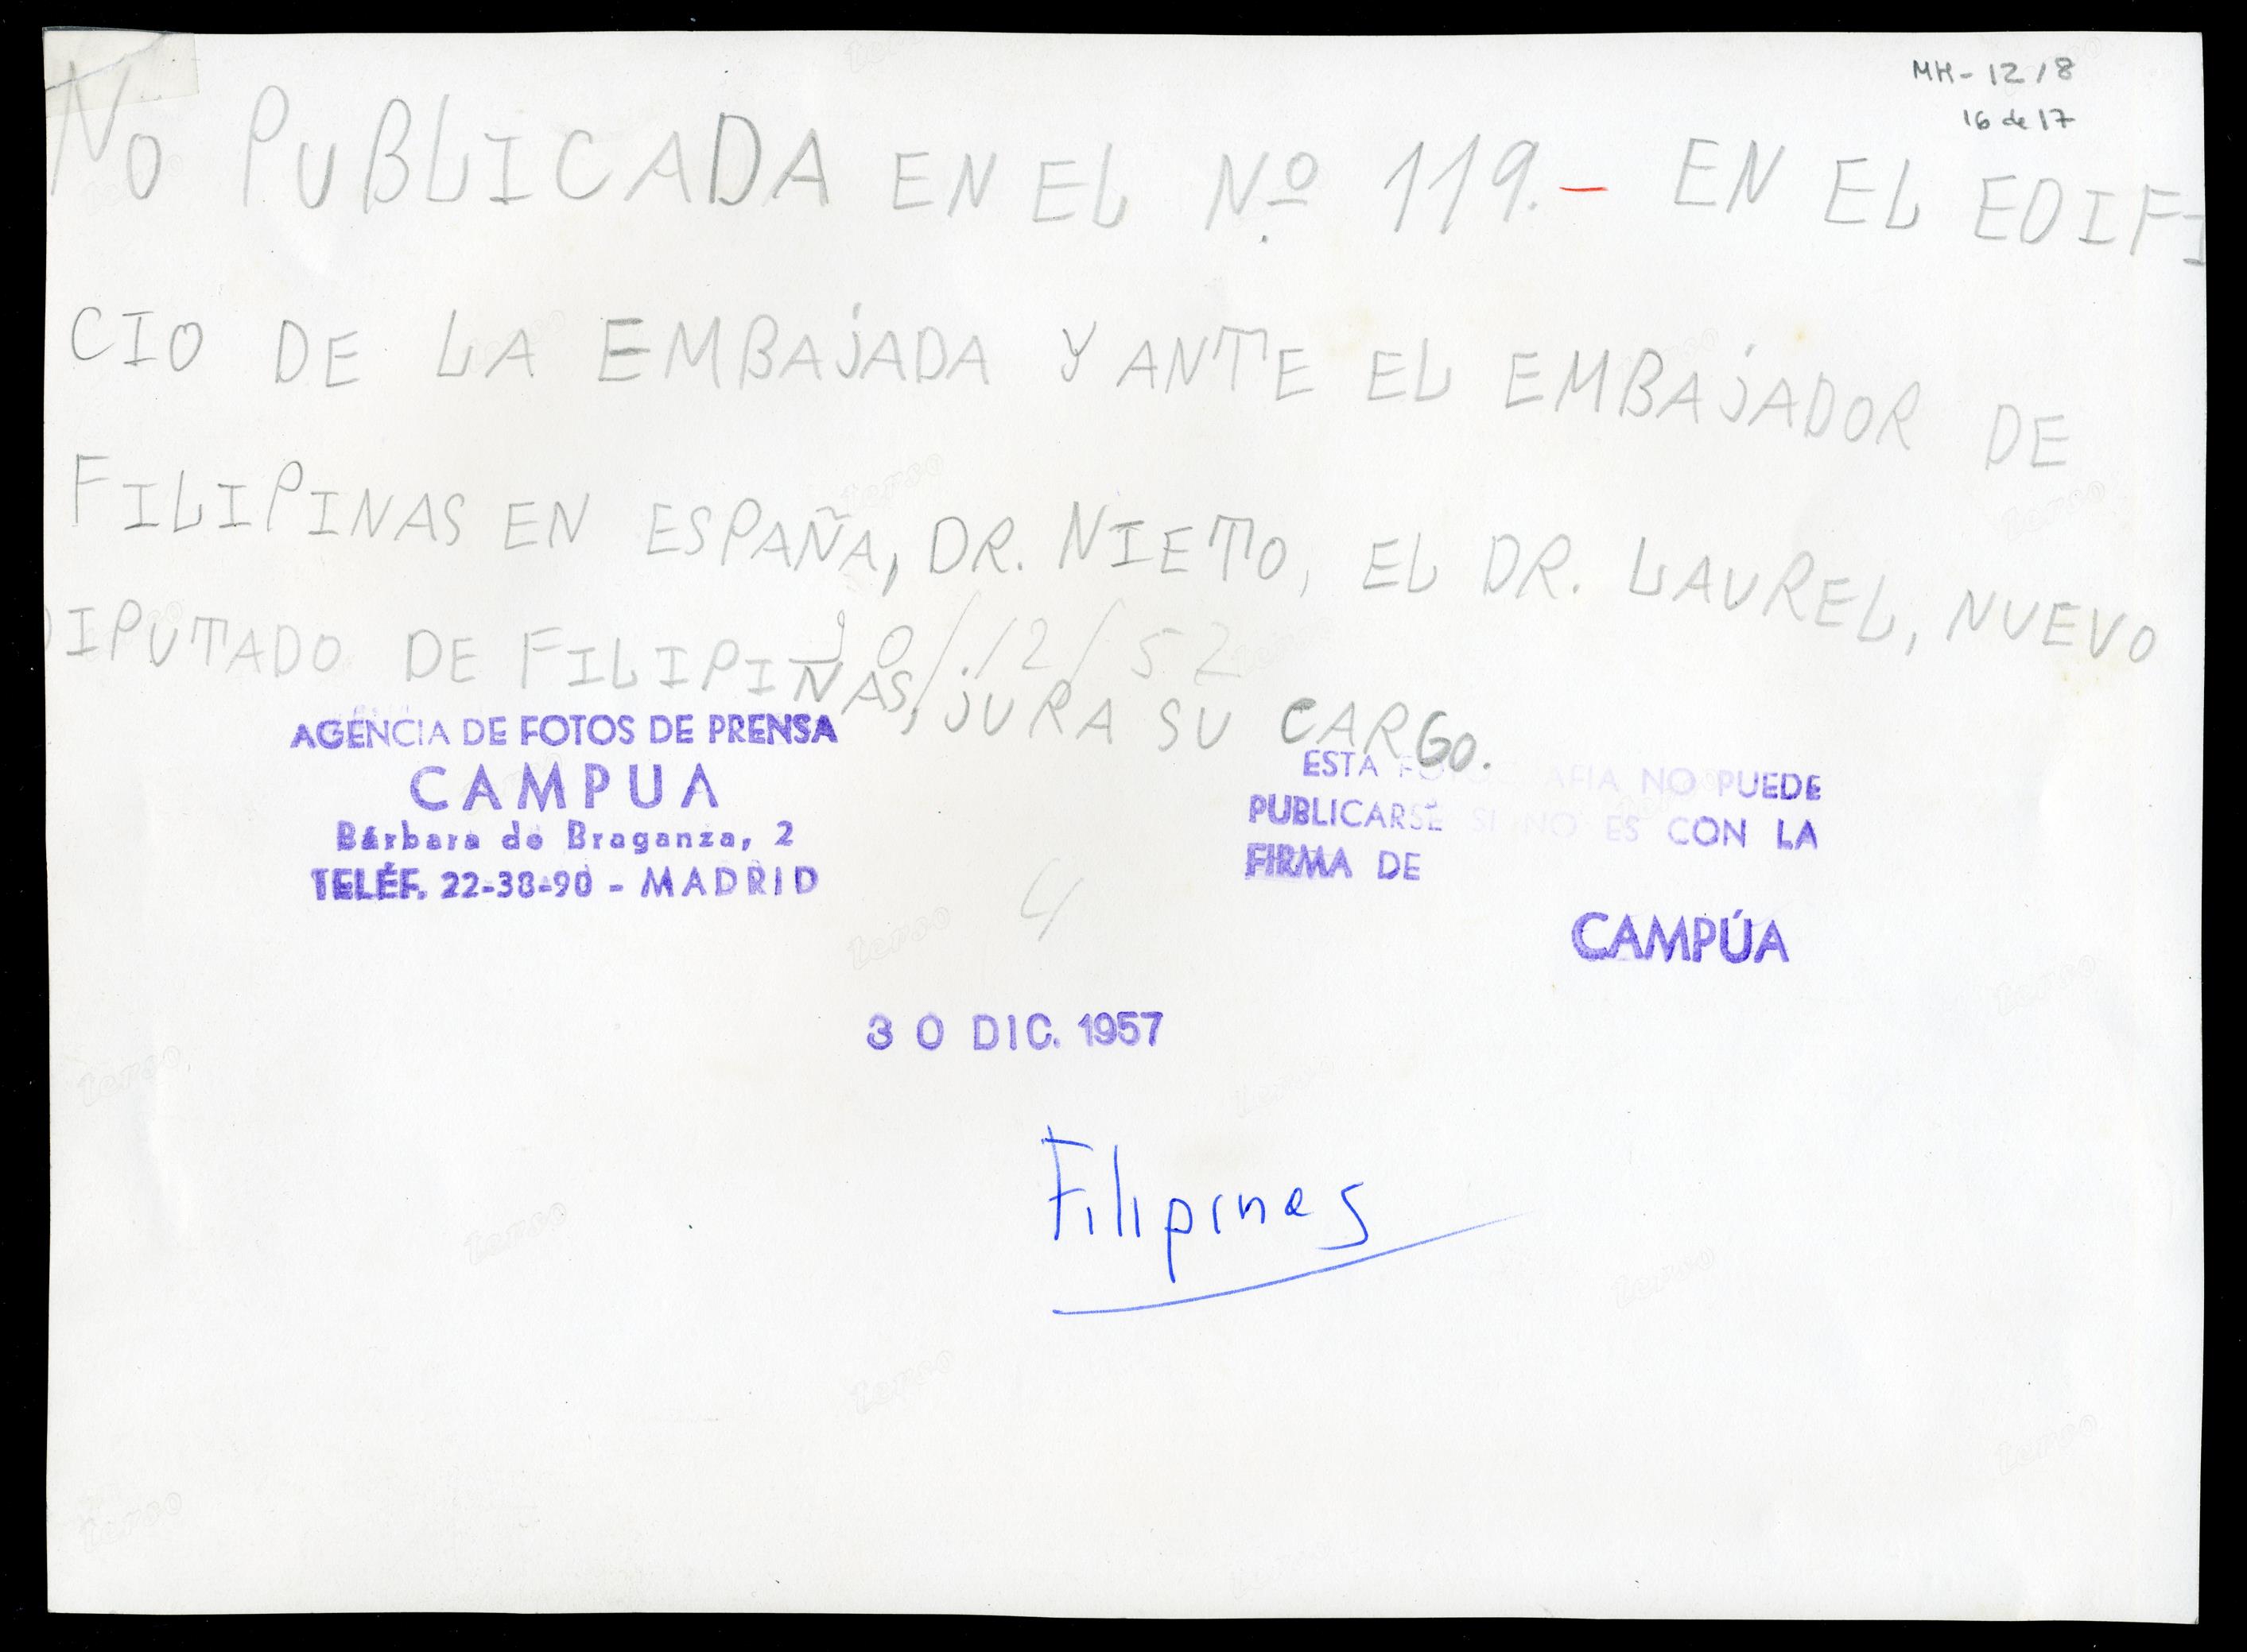 MH-1218
16 de 17
No PUBLICADA EN EL Nº 119.- EN EL EDIFI
CIO DE LA EMBAJADA Y ANTE EL EMBAJADOR DE
FILIPINAS EN ESPAÑA, DR. NIETO, EL DR. LAUREL, NUEVO
DIPUTADO DE FILIPINAS, JURA SU CARGO.
/12/52
AGENCIA DE FOTOS DE PRENSA
CAMPUA
Bárbara de Braganza, 2
TELÉF. 22-38-90 - MADRID
ESTA FOTOGRAFIA NO PUEDE
PUBLICARSE SI NO ES CON LA
FIRMA DE
CAMPÚA
4
30 DIC. 1957
Filipinas
terso